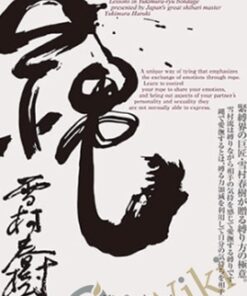 Lessons in Yukimura-ryu bondage
presented by Japan's great shibari master
Yukimura Haruki
A unique way of tying that emphasizes
the exchange of emotions through rope.
Learn to control
your rope to share your emotions,
and bring out aspects of your partner's
personality and sexuality they
are not normally able to express.
緊縛界の巨匠・雪村春樹が贈る縛り方の極意。
雪村流は縛りながら相手の気持を感じて愛撫する縛りです。
縄で愛撫するとは、縛る力加減を利用して自分の気持ちを相手
縄
雪村春樹
Wiki